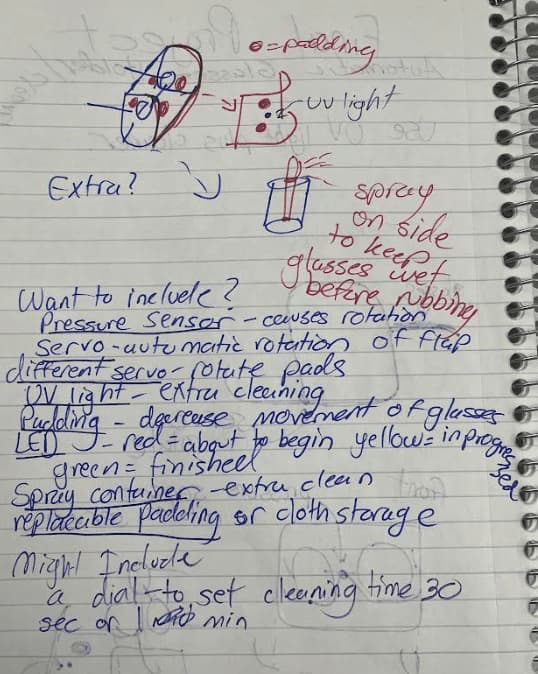 = padding
UV light
Extra?
spray
on side
to keep
glasses wet
before rubbing
Want to include?
Pressure Sensor - causes rotation
servo - automatic rotation of flap
different servo - rotate pads
UV light - extra cleaning
Padding - decrease movement of glasses
LED - red = about to begin yellow = in progressed
green = finished
Spray container - extra clean
replaceable padding or cloth storage
Might Include
a dial - to set cleaning time 30
sec or 1 min